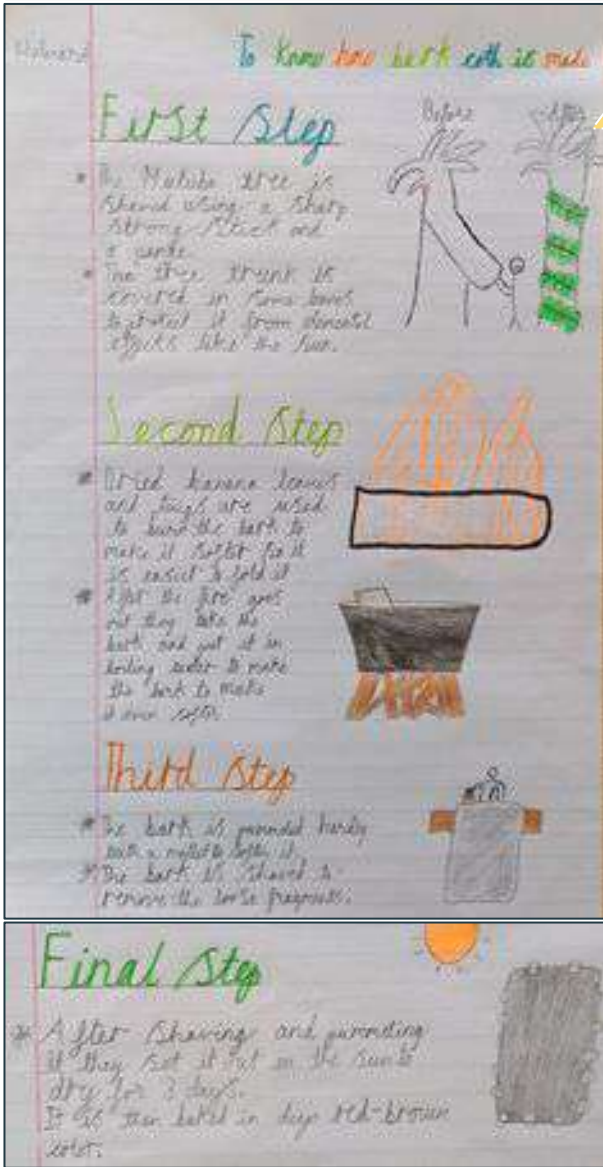 To know how bark coth is made
Before
After
First Step
* The Mutuba tree is
shaved using a sharp
strong stick and
a
* The tree trunk is
covered in some leaves
to protect it from
effects like the sun.
Second Step
* Dried banana leaves
and twigs are used
to burn the bark to
make it softer so it
is easier to fold it
* After the fire goes
out they take the
bark and put it in
boiling water to make
the bark to make
it even softer
Third Step
* The bark is pounded
with a mallet to soften it.
* The bark is shaved to
remove the loose fragments.
Final Step
* After shaving and pounding
it they set it out in the sun to
dry for 3 days.
It is then baked in deep red-brown
color.